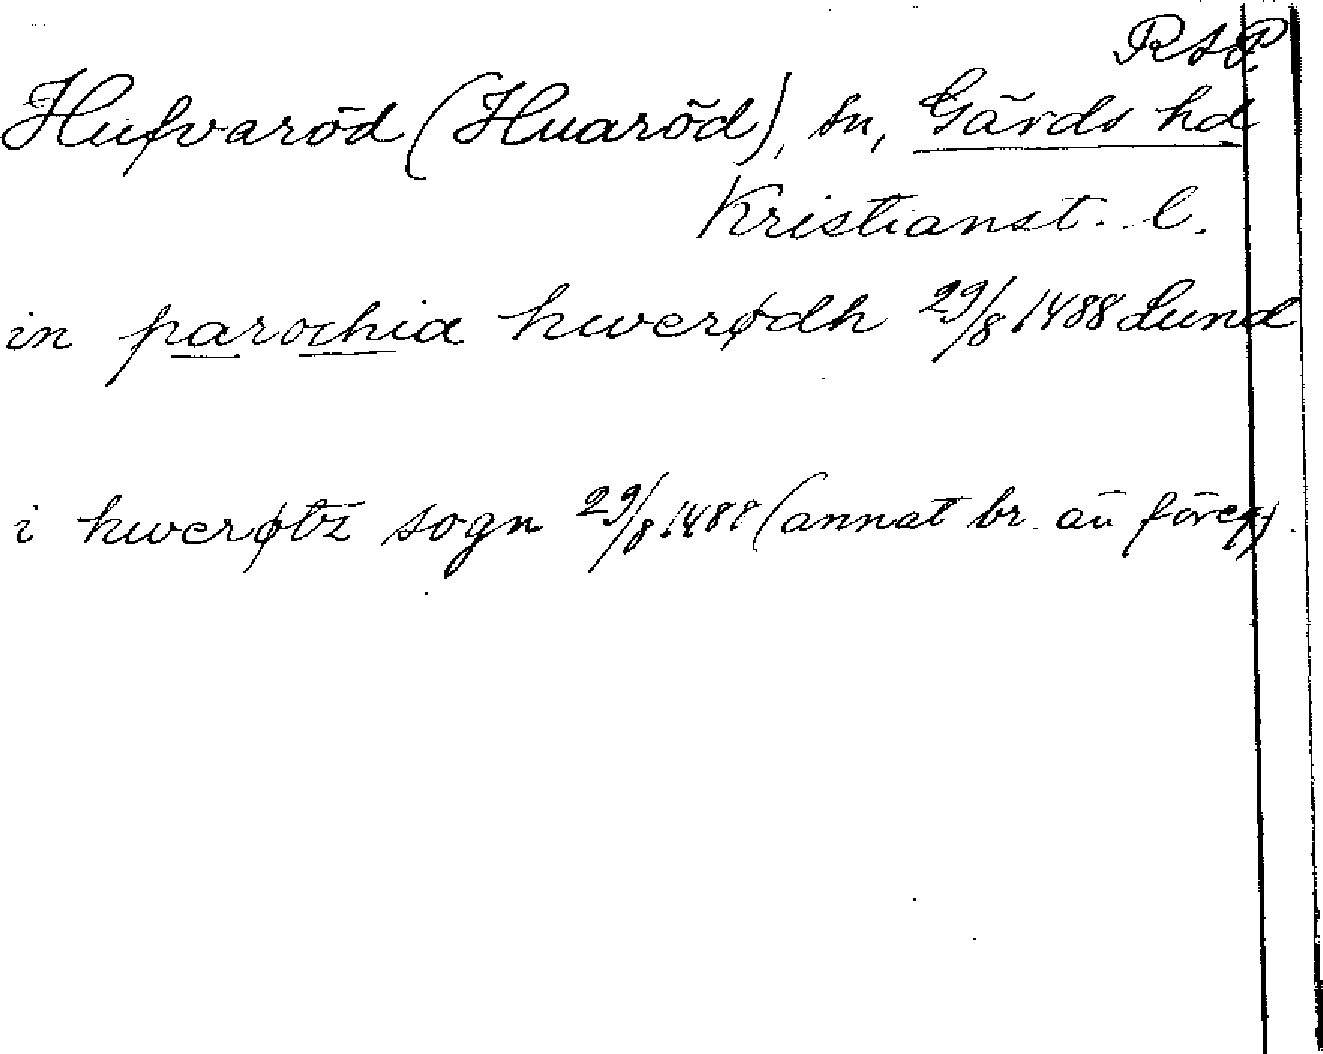 RAP.
Hufvaröd (Huaröd), sn, Gärds hd
Kristianst. l.
in parochia hwerødh 29/8 1488 Lund
i hwerøtz sogn 29/8 1488 (annat br. än föreg).